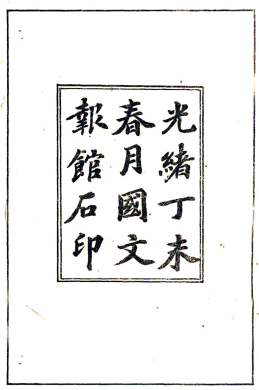 光緒丁未
春月國文
報館石印